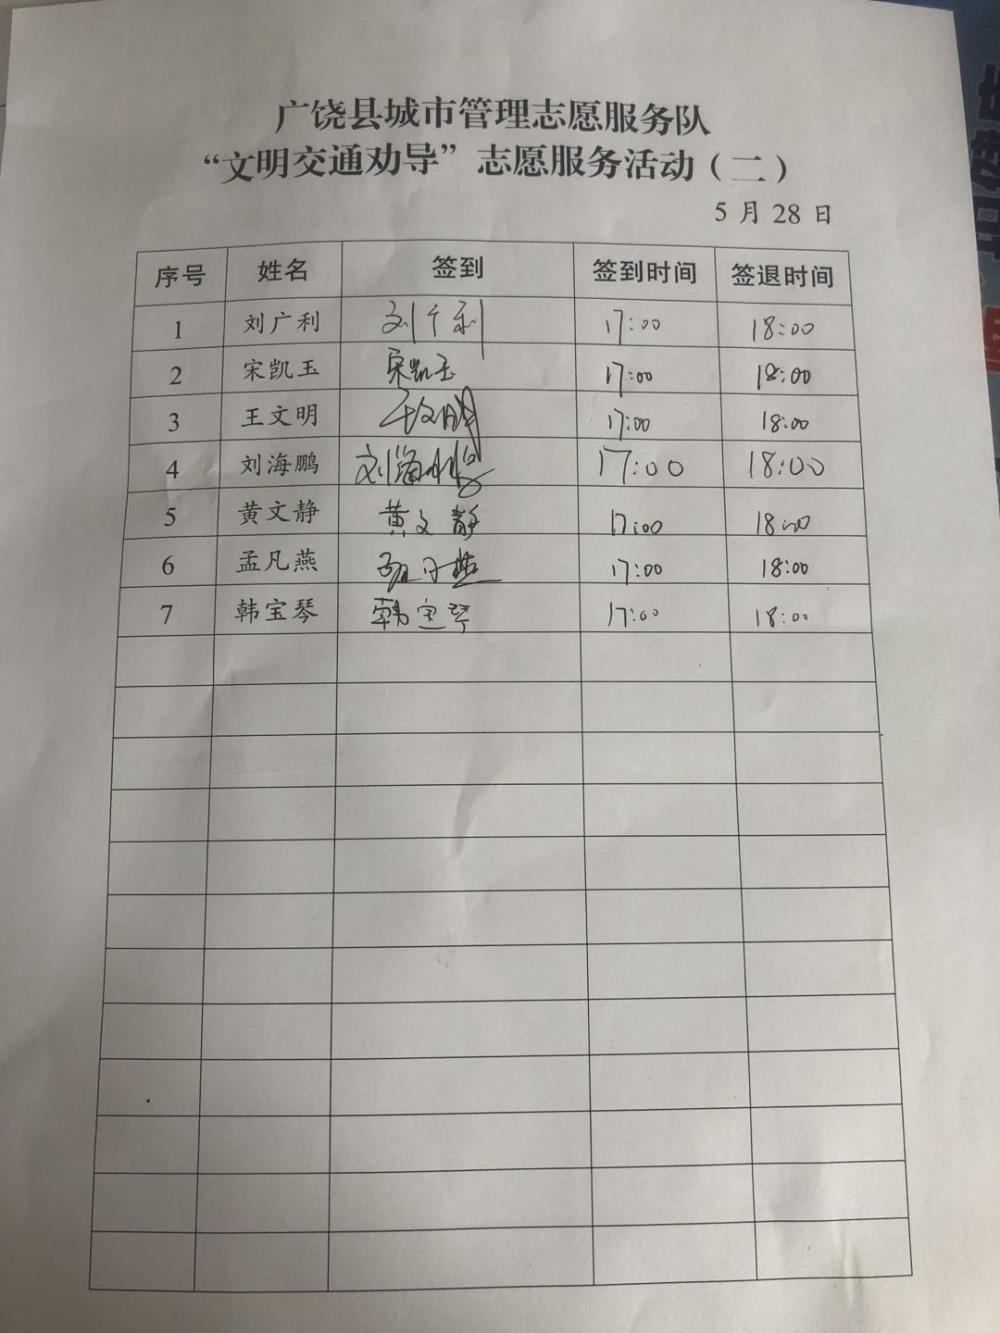 广饶县城市管理志愿服务队
“文明交通劝导”志愿服务活动（二）
5 月 28 日
序号 姓名 签到 签到时间 签退时间
1 刘广利 刘广利 17:00 18:00
2 宋凯玉 宋凯玉 17:00 18:00
3 王文明 王文明 17:00 18:00
4 刘海鹏 刘海鹏 17:00 18:00
5 黄文静 黄文静 17:00 18:00
6 孟凡燕 孟凡燕 17:00 18:00
7 韩宝琴 韩宝琴 17:00 18:00